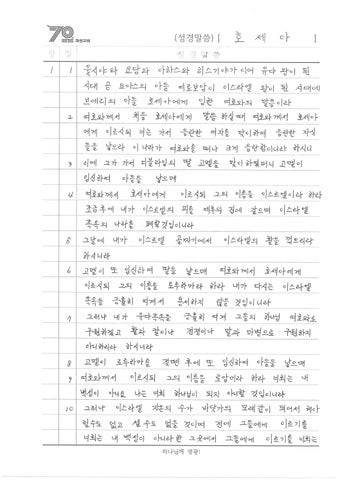 70 (성경말씀) [ 호 세 아 ]
장 절 성 경 말 씀
1 1 웃시야와 요담과 아하스와 히스기야가 이어 유다 왕이 된
시대 곧 요아스의 아들 여로보암이 이스라엘 왕이 된 시대에
브에리의 아들 호세아에게 임한 여호와의 말씀이라
2 여호와께서 처음 호세아에게 말씀 하실때 여호와께서 호세아
에게 이르시되 너는 가서 음란한 여자를 맞이하여 음란한 자식
들을 낳으라 이 나라가 여호와를 떠나 크게 음란함이니라 하시니
3 이에 그가 가서 디블라임의 딸 고멜을 맞이하였더니 고멜이
임신하여 아들을 낳으매
4 여호와께서 호세아에게 이르시되 그의 이름을 이스르엘이라 하라
조금후에 내가 이스르엘의 피를 예후의 집에 갚으며 이스라엘
족속의 나라를 폐할것임이니라
5 그날에 내가 이스르엘 골짜기에서 이스라엘의 활을 꺾으리라
하시니라
6 고멜이 또 임신하여 딸을 낳으매 여호와께서 호세아에게
이르시되 그의 이름을 로루하마라 하라 내가 다시는 이스라엘
족속을 긍휼히 여겨서 용서하지 않을 것임이니라
7 그러나 내가 유다족속을 긍휼히 여겨 그들의 하나님 여호와로
구원하겠고 활과 칼이나 전쟁이나 말과 마병으로 구원하지
아니하리라 하시니라
8 고멜이 로루하마를 젖뗀 후에 또 임신하여 아들을 낳으매
9 여호와께서 이르시되 그의 이름을 로암미라 하라 너희는 내
백성이 아니요 나는 너희 하나님이 되지 아니할 것임이니라
10 그러나 이스라엘 자손의 수가 바닷가의 모래같이 되어서 헤아
릴수도 없고 셀 수도 없을 것이며 전에 그들에게 이르기를
너희는 내 백성이 아니라 한 그곳에서 그들에게 이르기를 너희는
하나님께 영광!